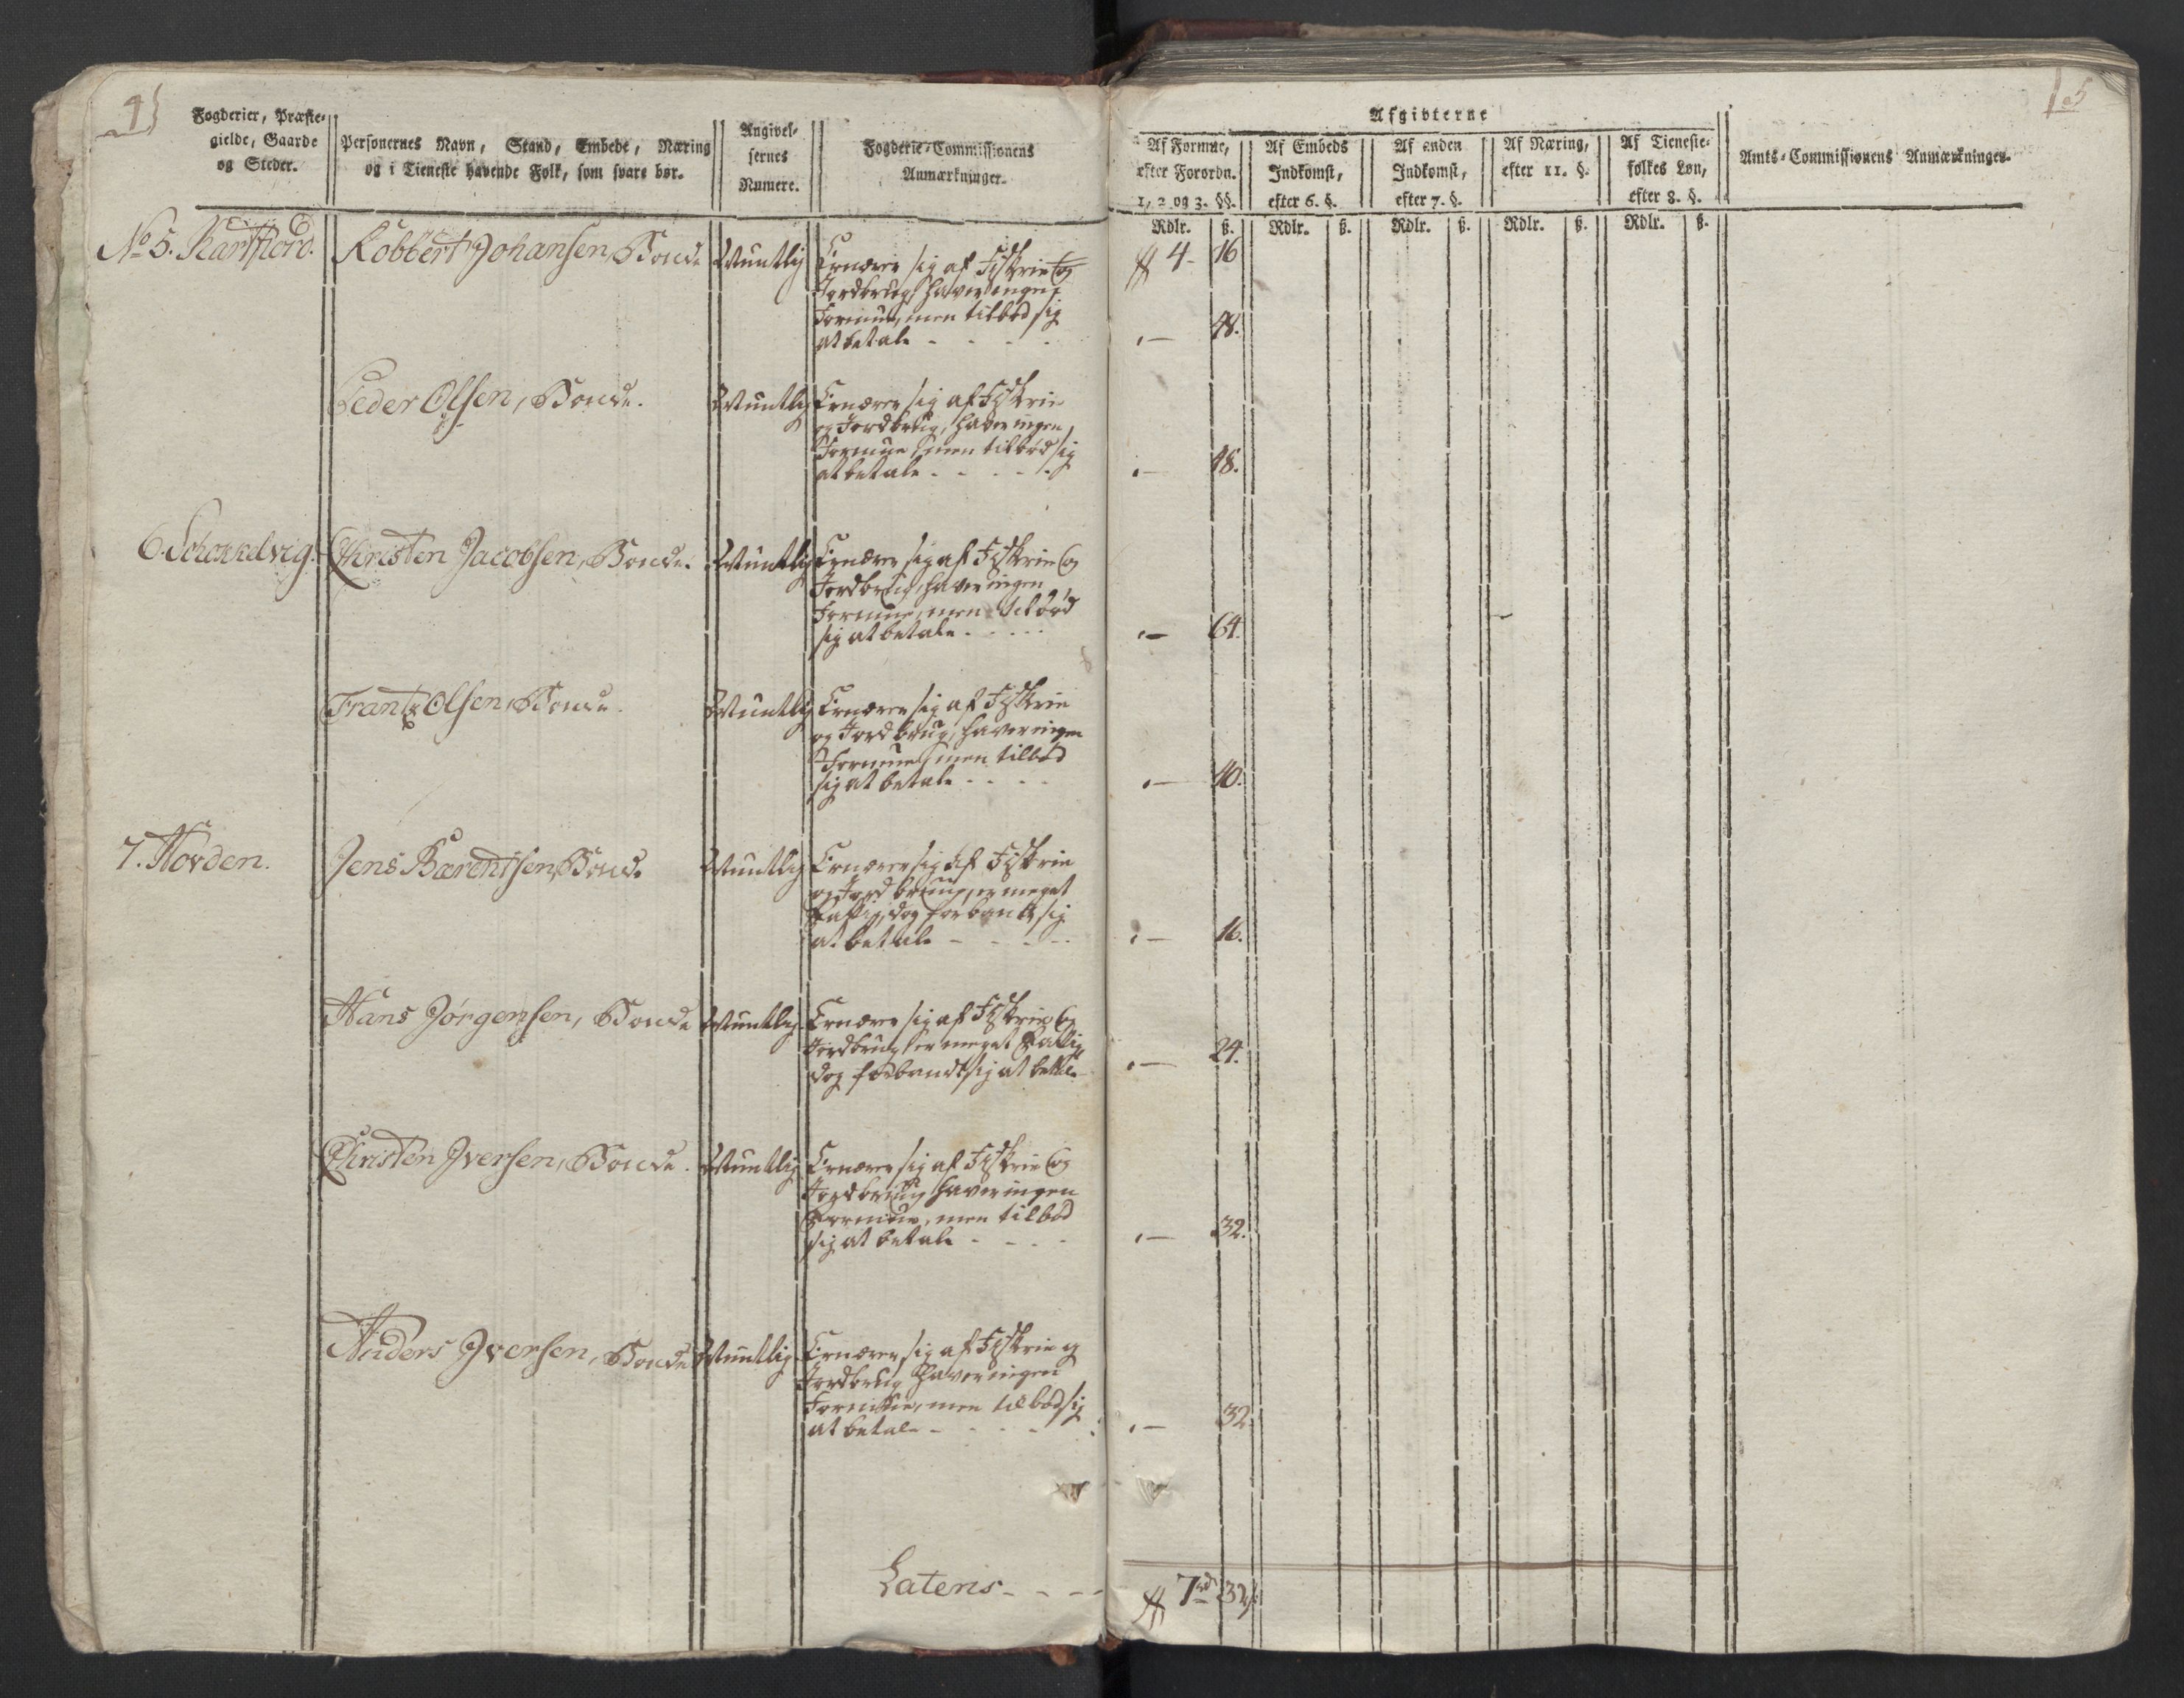 4
Fogderier, Præste-
gielde, Gaarde
og Steder.
Personernes Navn, Stand, Embede, Næring
og i Tieneste havende Folk, som svare bør.
Angivel-
sernes
Numere.
Fogderie-Commissionens
Anmærkninger.
No 5. Kartfiord.
Robbert Johansen, Bonde
Muntlig
Ernærer sig af Fiskrie og
Jordbrug, haver ingen
Formue, men tilbød sig
at betale - - - -
Peder Olsen, Bonde.
Muntlig
Ernærer sig af Fiskrie
og Jordbrug, haver ingen
Formue, men tilbød sig
at betale - - - -
6.
Christen Jacobsen, Bonde.
Muntlig
Ernærer sig af Fiskrie og
Jordbrug, haver ingen
Formue, men tilbød
sig at betale - - - -
Frantz Olsen, Bonde.
Muntlig
Ernærer sig af Fiskrie
og Jordbrug, haver ingen
Formue, men tilbød
sig at betale - - - -
7.
Jens Barentsen, Bonde
Muntlig
Ernærer sig af Fiskrie
og Jordbrug, er meget
Fattig, dog sig
at betale - - - -
Hans Jørgensen, Bonde
Muntlig
Ernærer sig af Fiskrie og
Jordbrug er meget Fattig
dog sig at betale
Christen Iversen, Bonde.
Muntlig
Ernærer sig af Fiskrie og
Jordbrug haver ingen
Formue, men tilbød
sig at betale - - - -
Anders Iversen, Bonde
Muntlig
Ernærer sig af Fiskrie og
Jordbrug haver ingen
Formue, men tilbød sig
at betale - - - -
Lateris - - -
5
Afgivterne
Af Formue,
efter Forordn.
1, 2 og 3. §§.
Af Embeds
Indkomst,
efter 6. §.
Af anden
Indkomst,
efter 7. §.
Af Næring,
efter 11. §.
Af Tieneste-
folkes Løn,
efter 8. §.
Amts-Commissionens Anmærkninger.
Rdlr. ß. Rdlr. ß. Rdlr. ß. Rdlr. ß. Rdlr. ß.
4 - 16
- 48.
- 48.
- 64.
- 40.
- 16.
- 24.
- 32.
- 32.
7 rd 32 ß